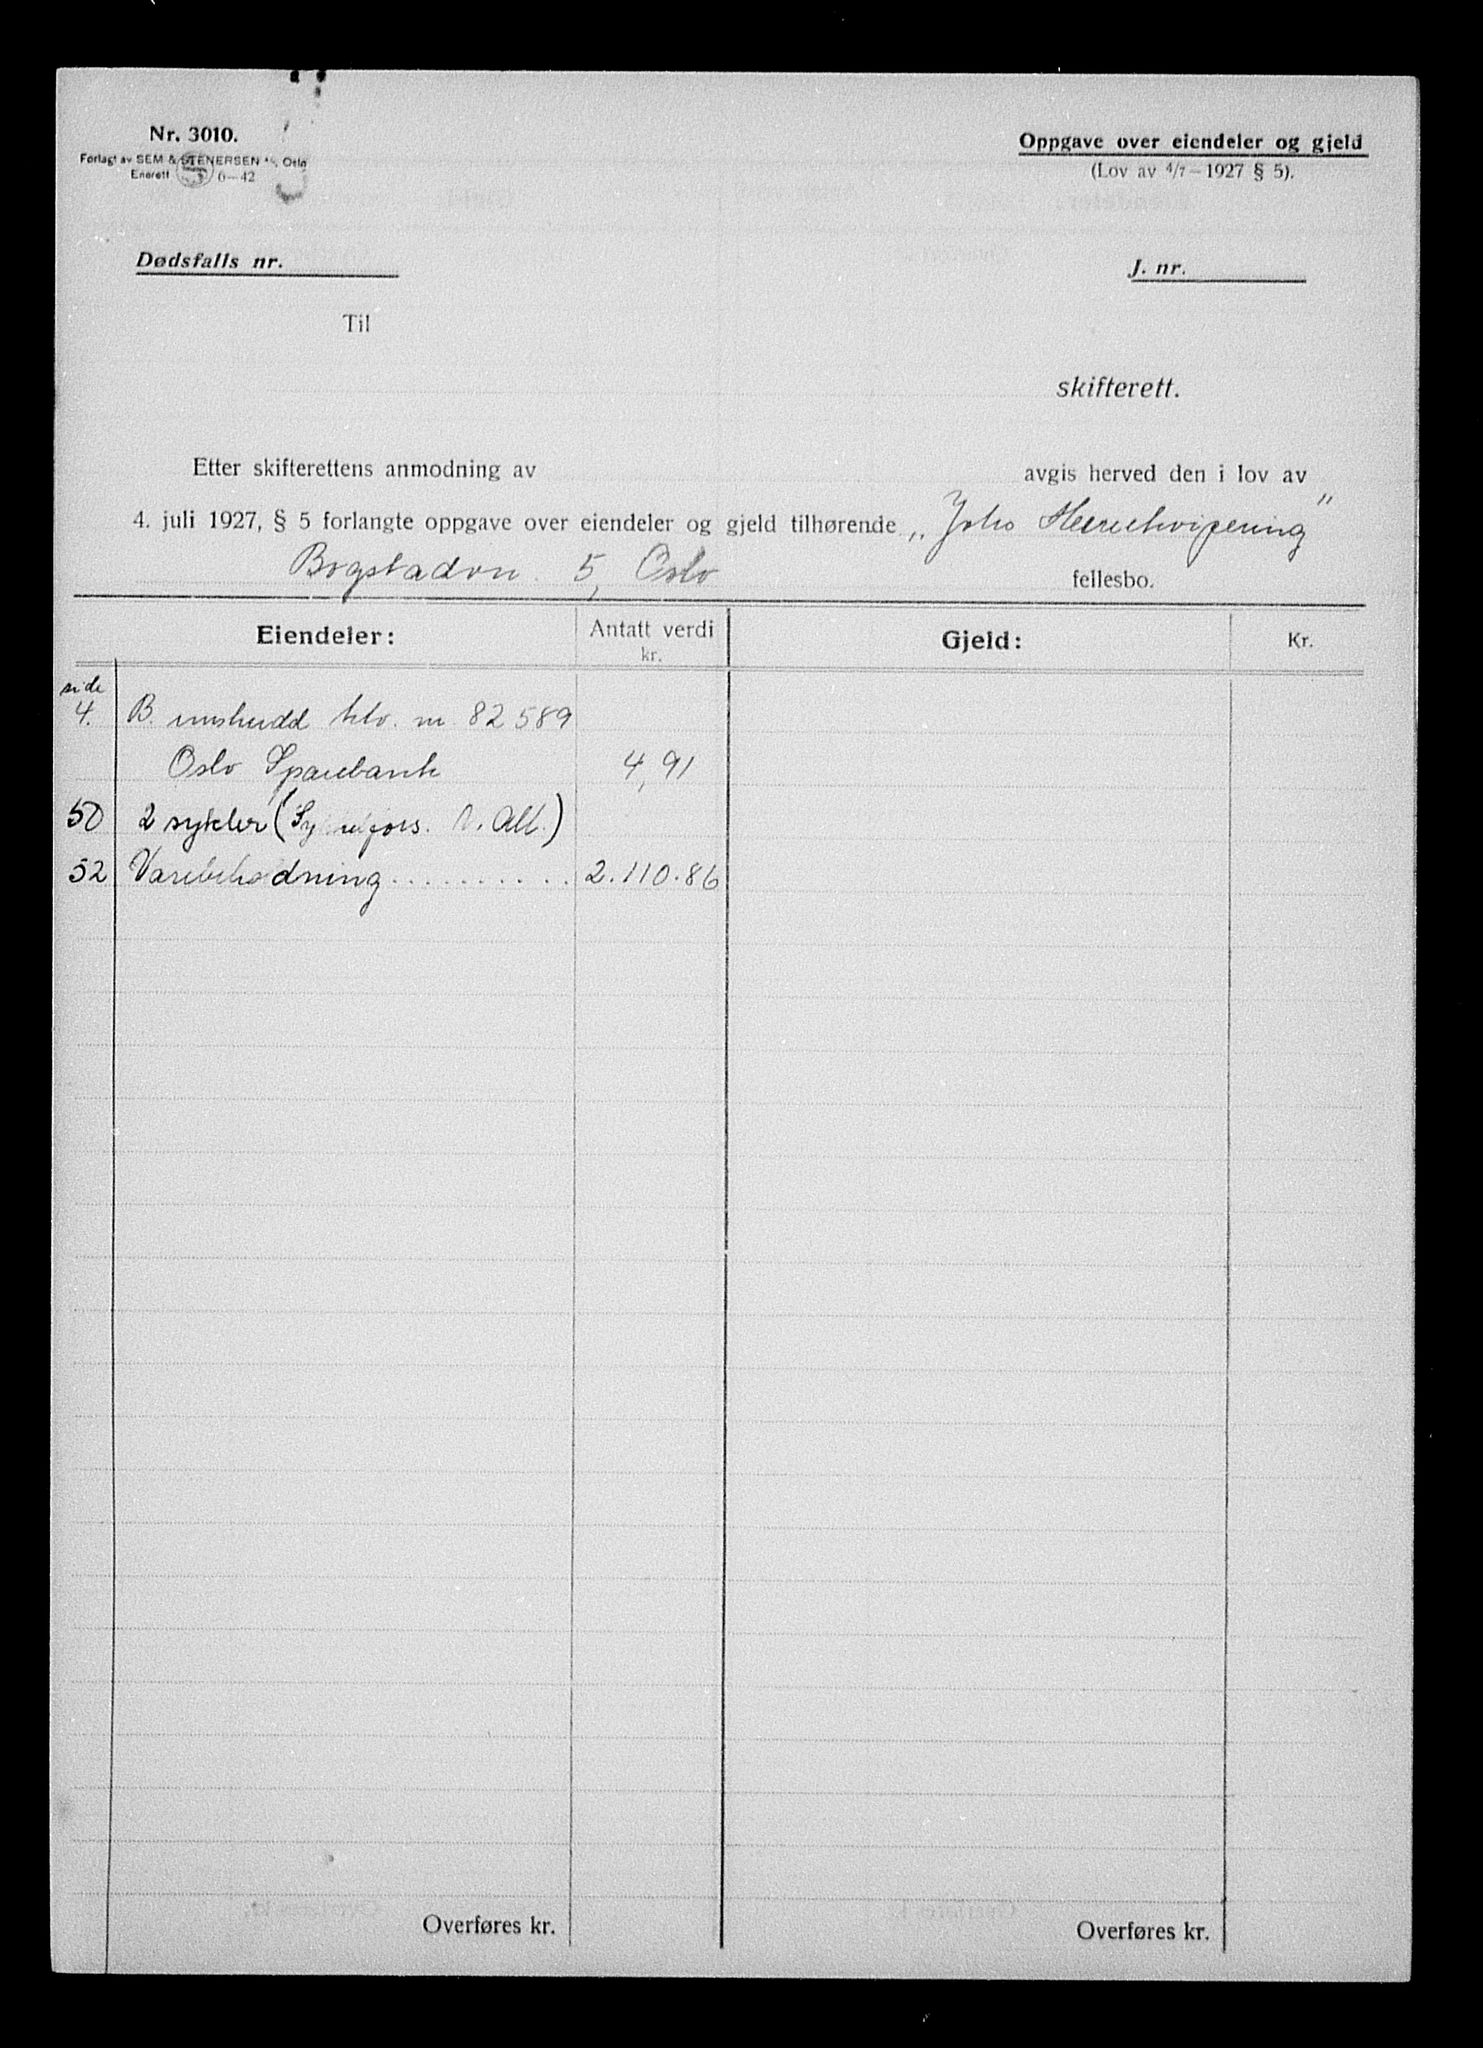 Nr. 3010.
Forlagt av SEM & STENERSEN A/S, Oslo
Enerett 6—42
Oppgave over eiendeler og gjeld
(Lov av 4/7 — 1927 § 5).
Dødsfalls nr.
J. nr.
Til
skifterett.
Etter skifterettens anmodning av avgis herved den i lov av
4. juli 1927, § 5 forlangte oppgave over eiendeler og gjeld tilhørende „Joho Herreekvipering”
Bogstadvn. 5, Oslo fellesbo.
Eiendeler: Antatt verdi kr. Gjeld: Kr.
side
4. B. innskudd ktv. nr. 82589
Oslo Sparebank 4,91
50 2 sykler (
52 Varebeholdning .......... 2.110.86
Overføres kr. Overføres kr.